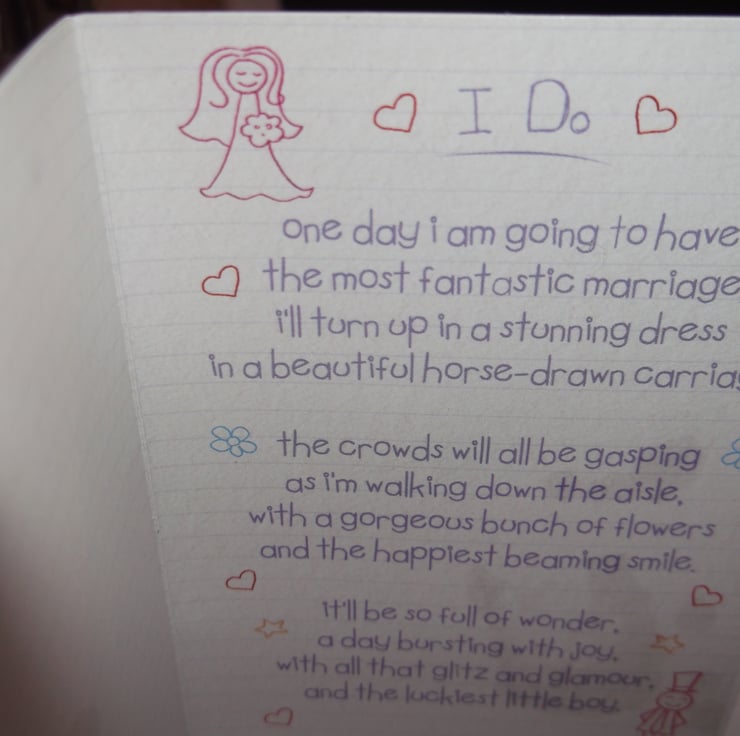 I Do
one day i am going to have
the most fantastic marriage
i'll turn up in a stunning dress
in a beautiful horse-drawn
the crowds will all be gasping
as i'm walking down the aisle,
with a gorgeous bunch of flowers
and the happiest beaming smile.
it'll be so full of wonder,
a day bursting with joy,
with all that glitz and glamour,
and the luckiest little boy.